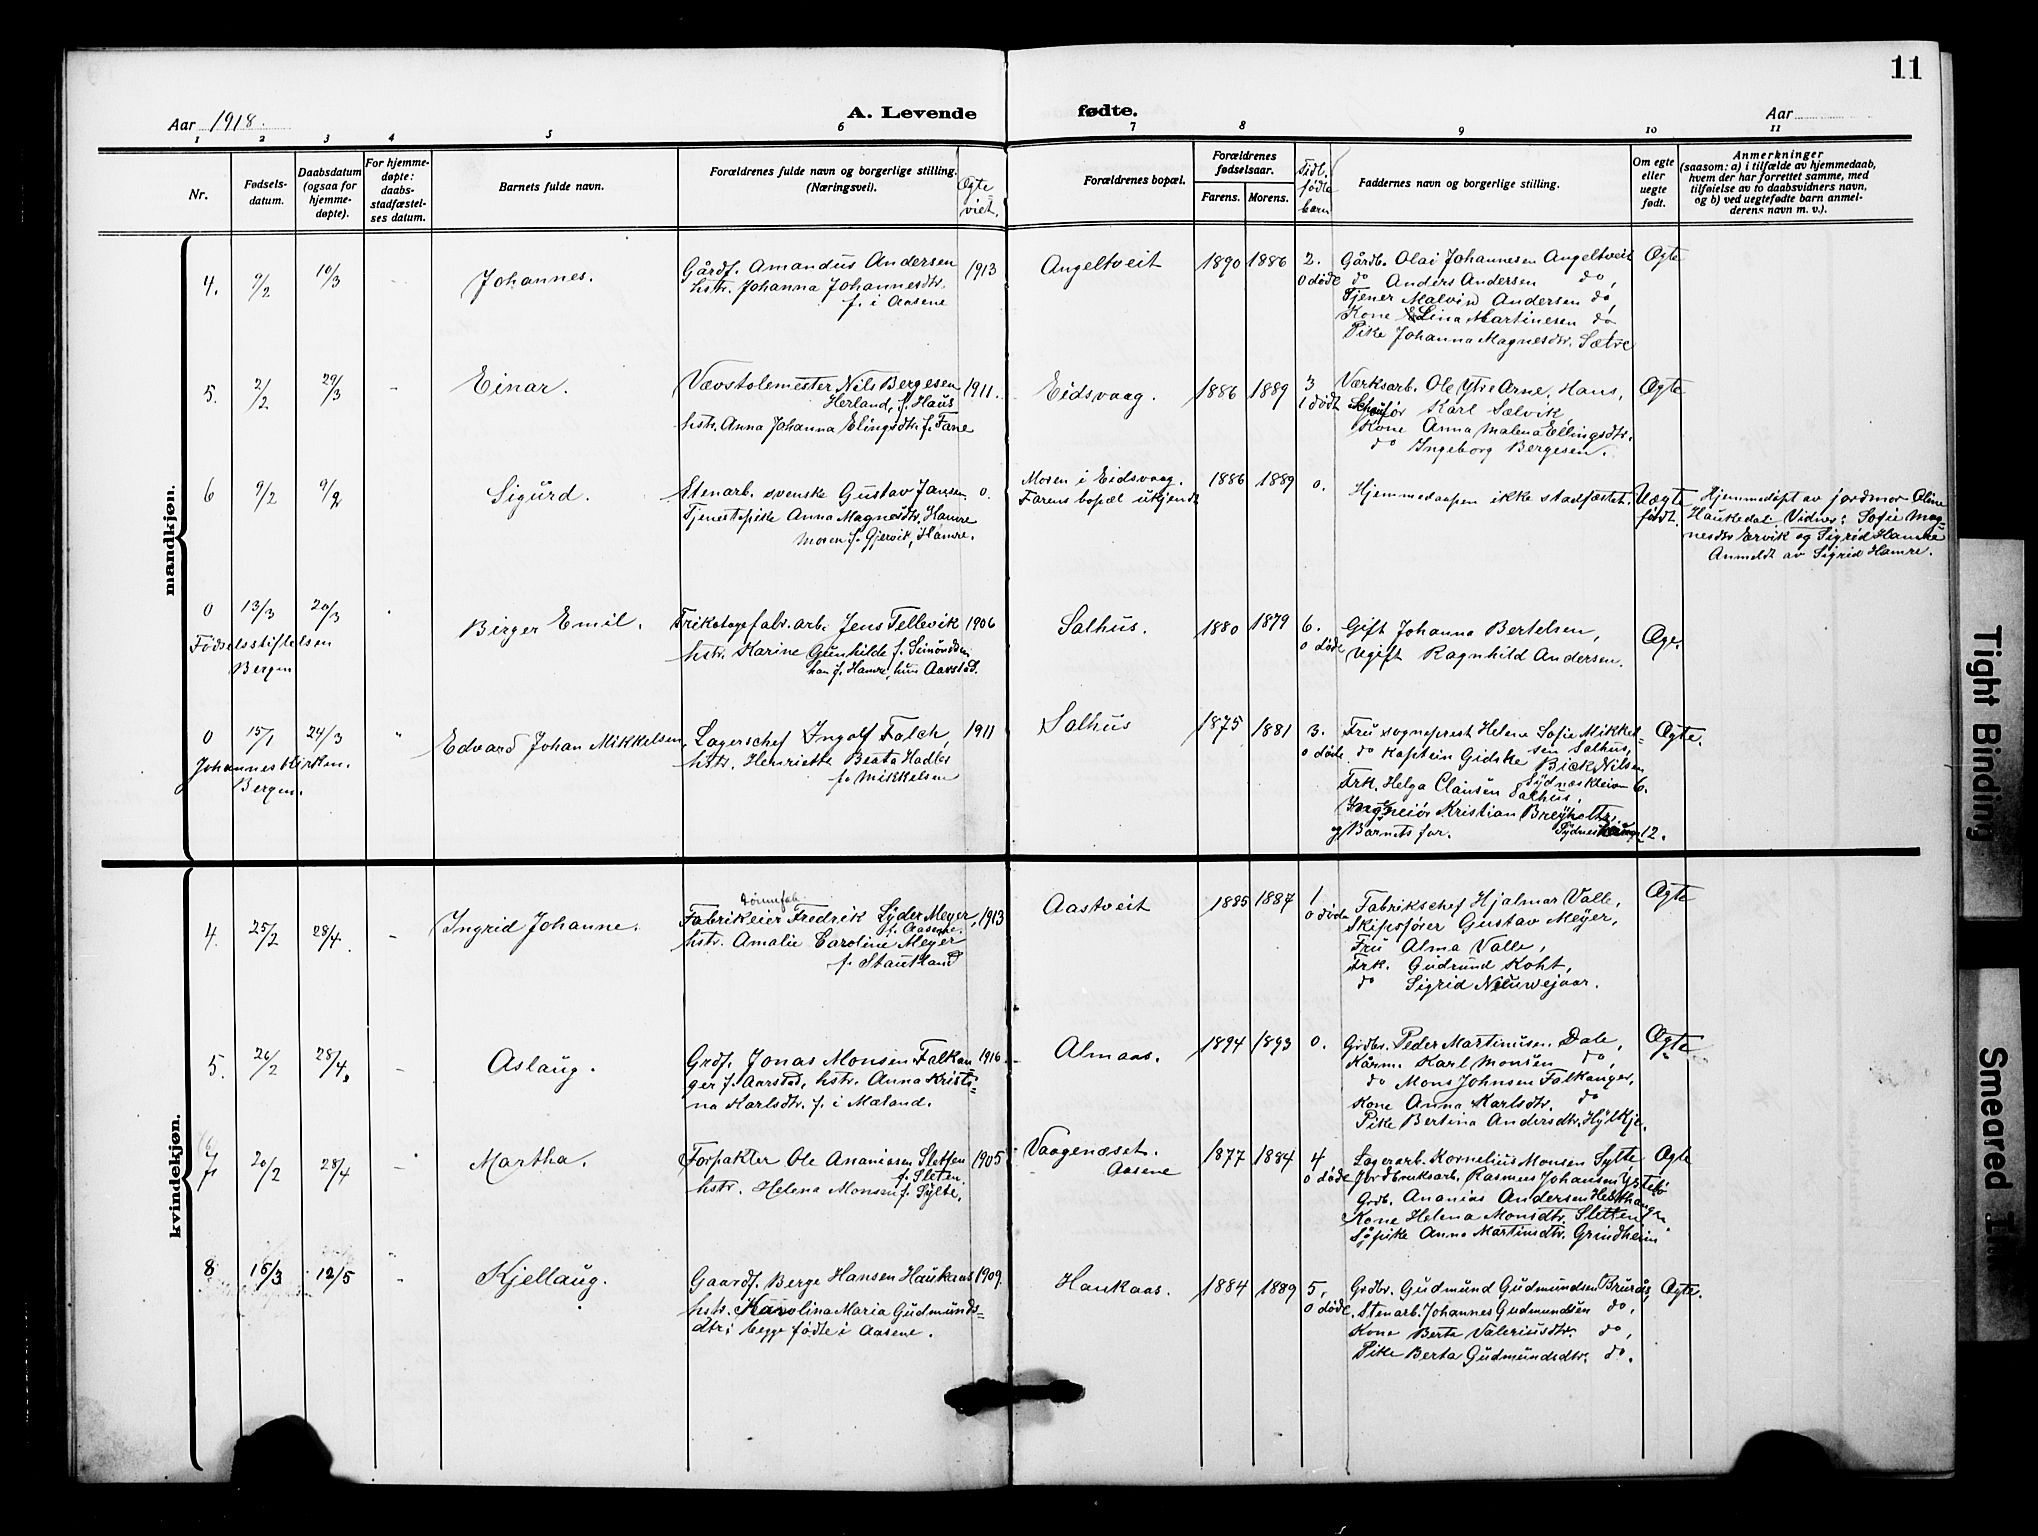 11
Aar 1918.
A. Levende
fødte.
Aar
1 2 3 4 5 6 7 8 9 10 11
Nr.
Fødsels-
datum.
Daabsdatum
(ogsaa for
hjemme-
døpte).
For hjemme-
døpte:
daabs-
stadfæstel-
ses datum.
Barnets fulde navn.
Forældrenes fulde navn og borgerlige stilling.
(Næringsvei).
Ægte
viet.
Forældrenes bopæl.
Forældrenes
fødselsaar.
Farens. Morens.
Tidl.
fødte
barn
Faddernes navn og borgerlige stilling.
Om egte
eller
uegte
født.
Anmerkninger
(saasom: a) i tilfælde av hjemmedaab,
hvem der har forrettet samme, med
tilføielse av to daabsvidners navn,
og b) ved uegtefødte barn anmel-
derens navn m. v.).
mandkjøn.
4. 9/2 10/3 - Johannes.
Gårdf. Amandus Andersen 1913
hstr. Johanna Johannesdtr.
f. i Aasene
Angeltveit 1890 1886 2.
0 døde
Gårdb. Olai Johannesen Angeltveit Ægte
do Anders Andersen do,
Tjener Malvin Andersen do,
Kone Elina Martinesen do
Pike Johanna Magnesdtr. Sætre
5. 2/2 29/3 - Einar.
Vævstolemester Nils Bergesen 1911.
Herland, f. Haus
hstr. Anna Johanna Elingsdtr f. Fane
Eidsvaag. 1886 1889 3
1 dødt
Værksarb. Ole Ytre Arne, Haus, Ægte
Schaufør Karl Sælvik,
Kone Anna Malena Ellingsdtr.
do Ingeborg Bergesen.
6 9/2 9/2 Sigurd.
Stenarb. svenske Gustav Jansen 0.
Tjenestepike Anna Magnesdtr. Hamre
Moren f. Gjervik, Hamre.
Moren i Eidsvaag.
Farens bopæl ukjendt
1886 1889 0.
Hjemmedaapen ikke stadfæstet.
Uægte
født.
Hjemmedøpt av jordmor Oline
Haukedal Vidner: Sofie Mag-
nesdtr Ervik og Sigrid Hamre
Anmeldt av Sigrid Hamre.
0 13/3 20/3
Fødselsstiftelsen
Bergen
Birger Emil.
Trikotagefabr. arb. Jens Tellevik 1906
hstr. Karine Gunhilde f.
han f. Hamre, hun Aarstad.
Salhus. 1880 1879 6.
0 døde
Gift Johanna Bertelsen,
Ugift Ragnhild Andersen.
Æge.
0 15/1 24/3 "
Johanneskirken.
Bergen.
Edvard Johan Mikkelsen,
Lagerschef Ingolf Falch, 1911
hstr. Henriette Beata Hadler
f. Mikkelsen
Salhus 1875 1881 3.
0 døde
Fru sogneprest Helene Sofie Mikkel- Ægte.
sen Salhus,
do Kaptein Gidske Bick Nilsen
Sydneskleiven 6.
Frk. Helga Clausen Salhus,
Ingeniør Kristian Breyholtz,
12.
og Barnets far.
kvindekjøn.
4. 25/2 28/4. - Ingrid Johanne.
Tønnefab.
Fabrikeier Fredrik Lyder Meyer, 1913
f. Aasene.
hstr. Amalie Caroline Meyer
f. Stautland
Aastveit 1885 1887 1
0 døde
Fabrikschef Hjalmar Valle, Ægte
Skipsfører Gustav Meyer,
Fru Alma Valle,
Frk. Gudrund Koht,
do Sigrid Nieuwejaar.
5. 26/2 28/4. - Aslaug.
Grdf. Jonas Monsen Falkan- 1916.
ger f. Aarstad, hstr. Anna Kristi-
na Karlsdtr. f. i Mæland.
Almaas. 1894 1893 0.
Grdbr. Peder Martinusen Dale, Ægte
Kårm. Karl Monsen do,
do Mons Johnsen Falkanger,
Kone Anna Karlsdtr. do
Pike Bertina Andersdtr. Hylkje.
7 20/2 28/4 - Martha.
Forpakter Ole Ananiasen Sletten 1905
f. Sleten.
hstr. Helena Monsen f. Sylte,
Vaagenæset.
Aasene
1877 1884 4
0 døde
Lagerarb. Kornelius Monsen Sylte Ægte
Jordbruksarb. Rasmus Johansen
Grdb. Ananias Andersen
Kone Helena Monsdtr. Sletten
Sypike Anna Martinsdtr. Grindheim
8 16/3 12/5 " Kjellaug.
Gaardf. Berge Hansen Haukaas 1909.
hstr. Karolina Maria Gudmunds-
dtr; begge fødte i Aasene.
Haukaas. 1884 1889 5,
0 døde.
Grdbr. Gudmund Gudmundsen Bruraas, Ægte.
Stenarb. Johannes Gudmundsen do,
Kone Berta Valeriusdtr. do,
Pike Berta Gudmundsdtr. do.
Tight Binding
Smeared